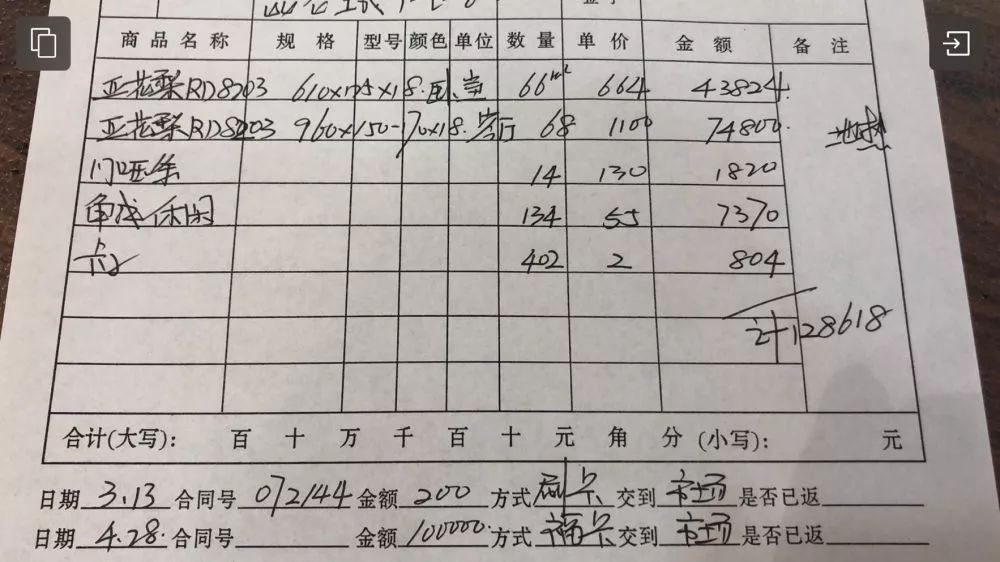 商品名称 规格 型号 颜色 单位 数量 单价 金额 备注
亚花梨RD8203 610x125x18. 卧室 66m² 664 43824.
亚花梨RD8203 960x150-170x18. 客厅 68 1100 74800. 地热
门哑条 14 130 1820
休闲 134 55 7370
402 2 804
计128618
合计(大写): 百 十 万 千 百 十 元 角 分 (小写): 元
日期 3.13 合同号 072144 金额 200 方式 刷卡 交到 市场 是否已返
日期 4.28. 合同号 金额 100000. 方式 福卡 交到 市场 是否已返